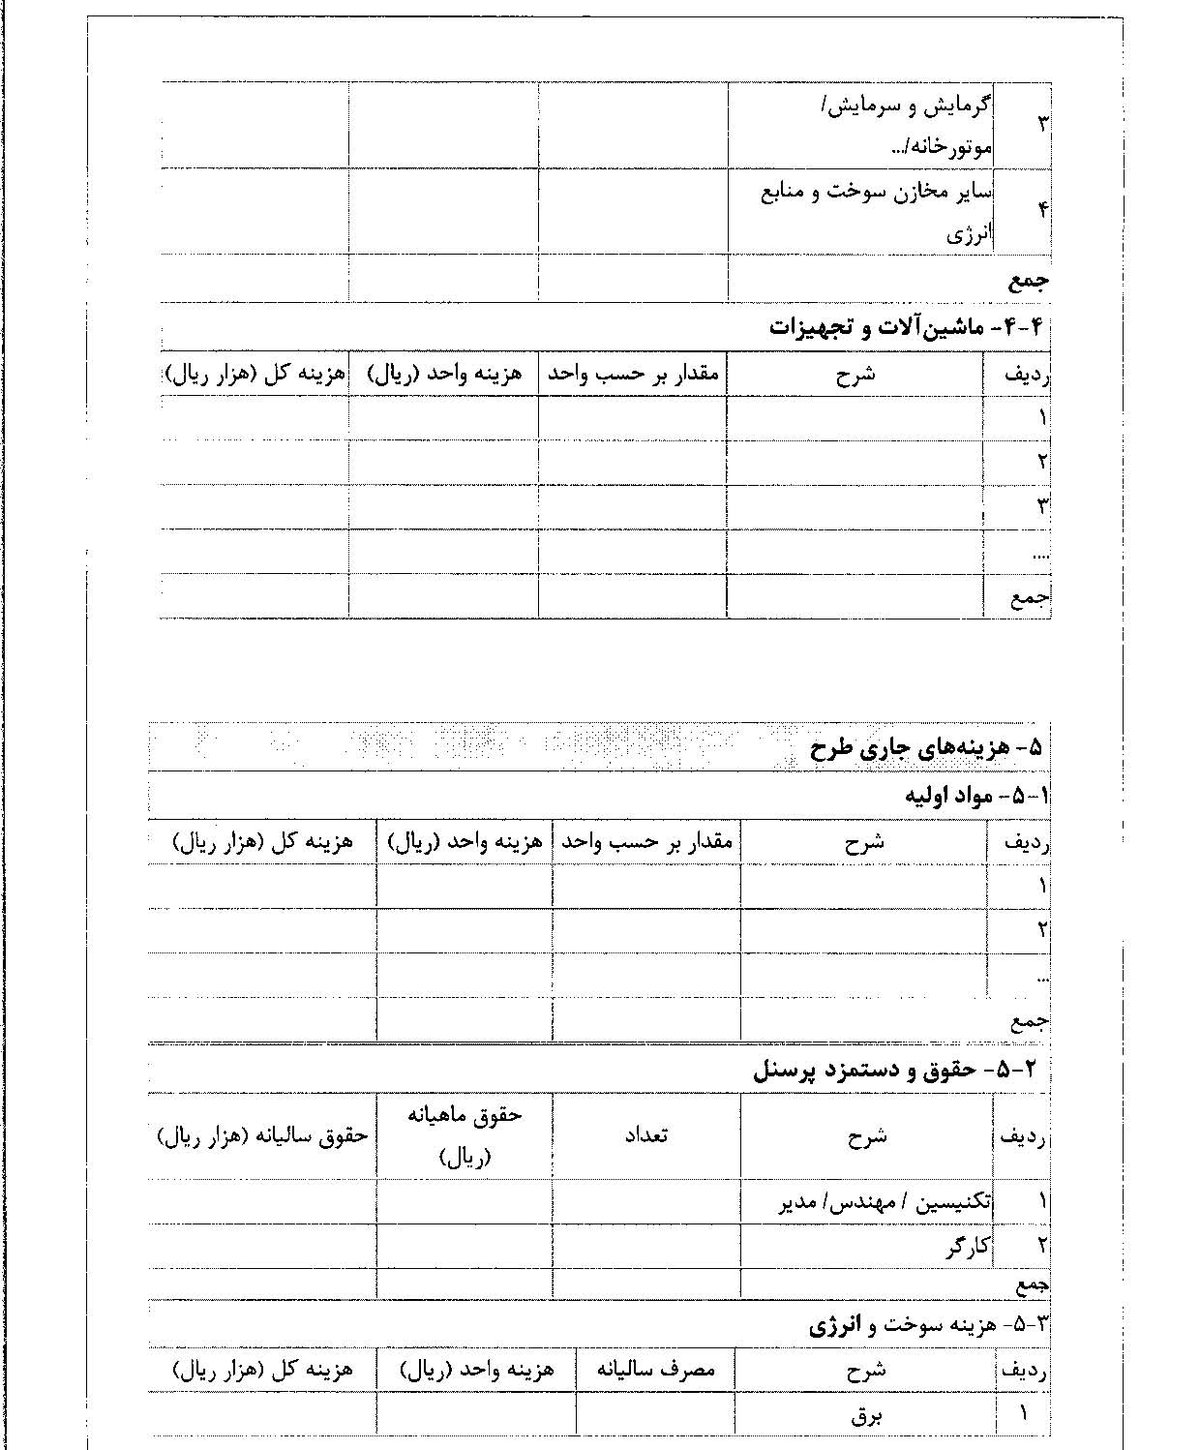 ۳ گرمایش و سرمایش/
موتورخانه/...
۴ سایر مخازن سوخت و منابع
انرژی
جمع
۴-۴- ماشین‌آلات و تجهیزات
ردیف شرح مقدار بر حسب واحد هزینه واحد (ریال) هزینه کل (هزار ریال)
۱
۲
۳
....
جمع
۵- هزینه‌های جاری طرح
۵-۱- مواد اولیه
ردیف شرح مقدار بر حسب واحد هزینه واحد (ریال) هزینه کل (هزار ریال)
۱
۲
...
جمع
۵-۲- حقوق و دستمزد پرسنل
ردیف شرح تعداد حقوق ماهیانه (ریال) حقوق سالیانه (هزار ریال)
۱ تکنیسین / مهندس/ مدیر
۲ کارگر
جمع
۵-۳- هزینه سوخت و انرژی
ردیف شرح مصرف سالیانه هزینه واحد (ریال) هزینه کل (هزار ریال)
۱ برق